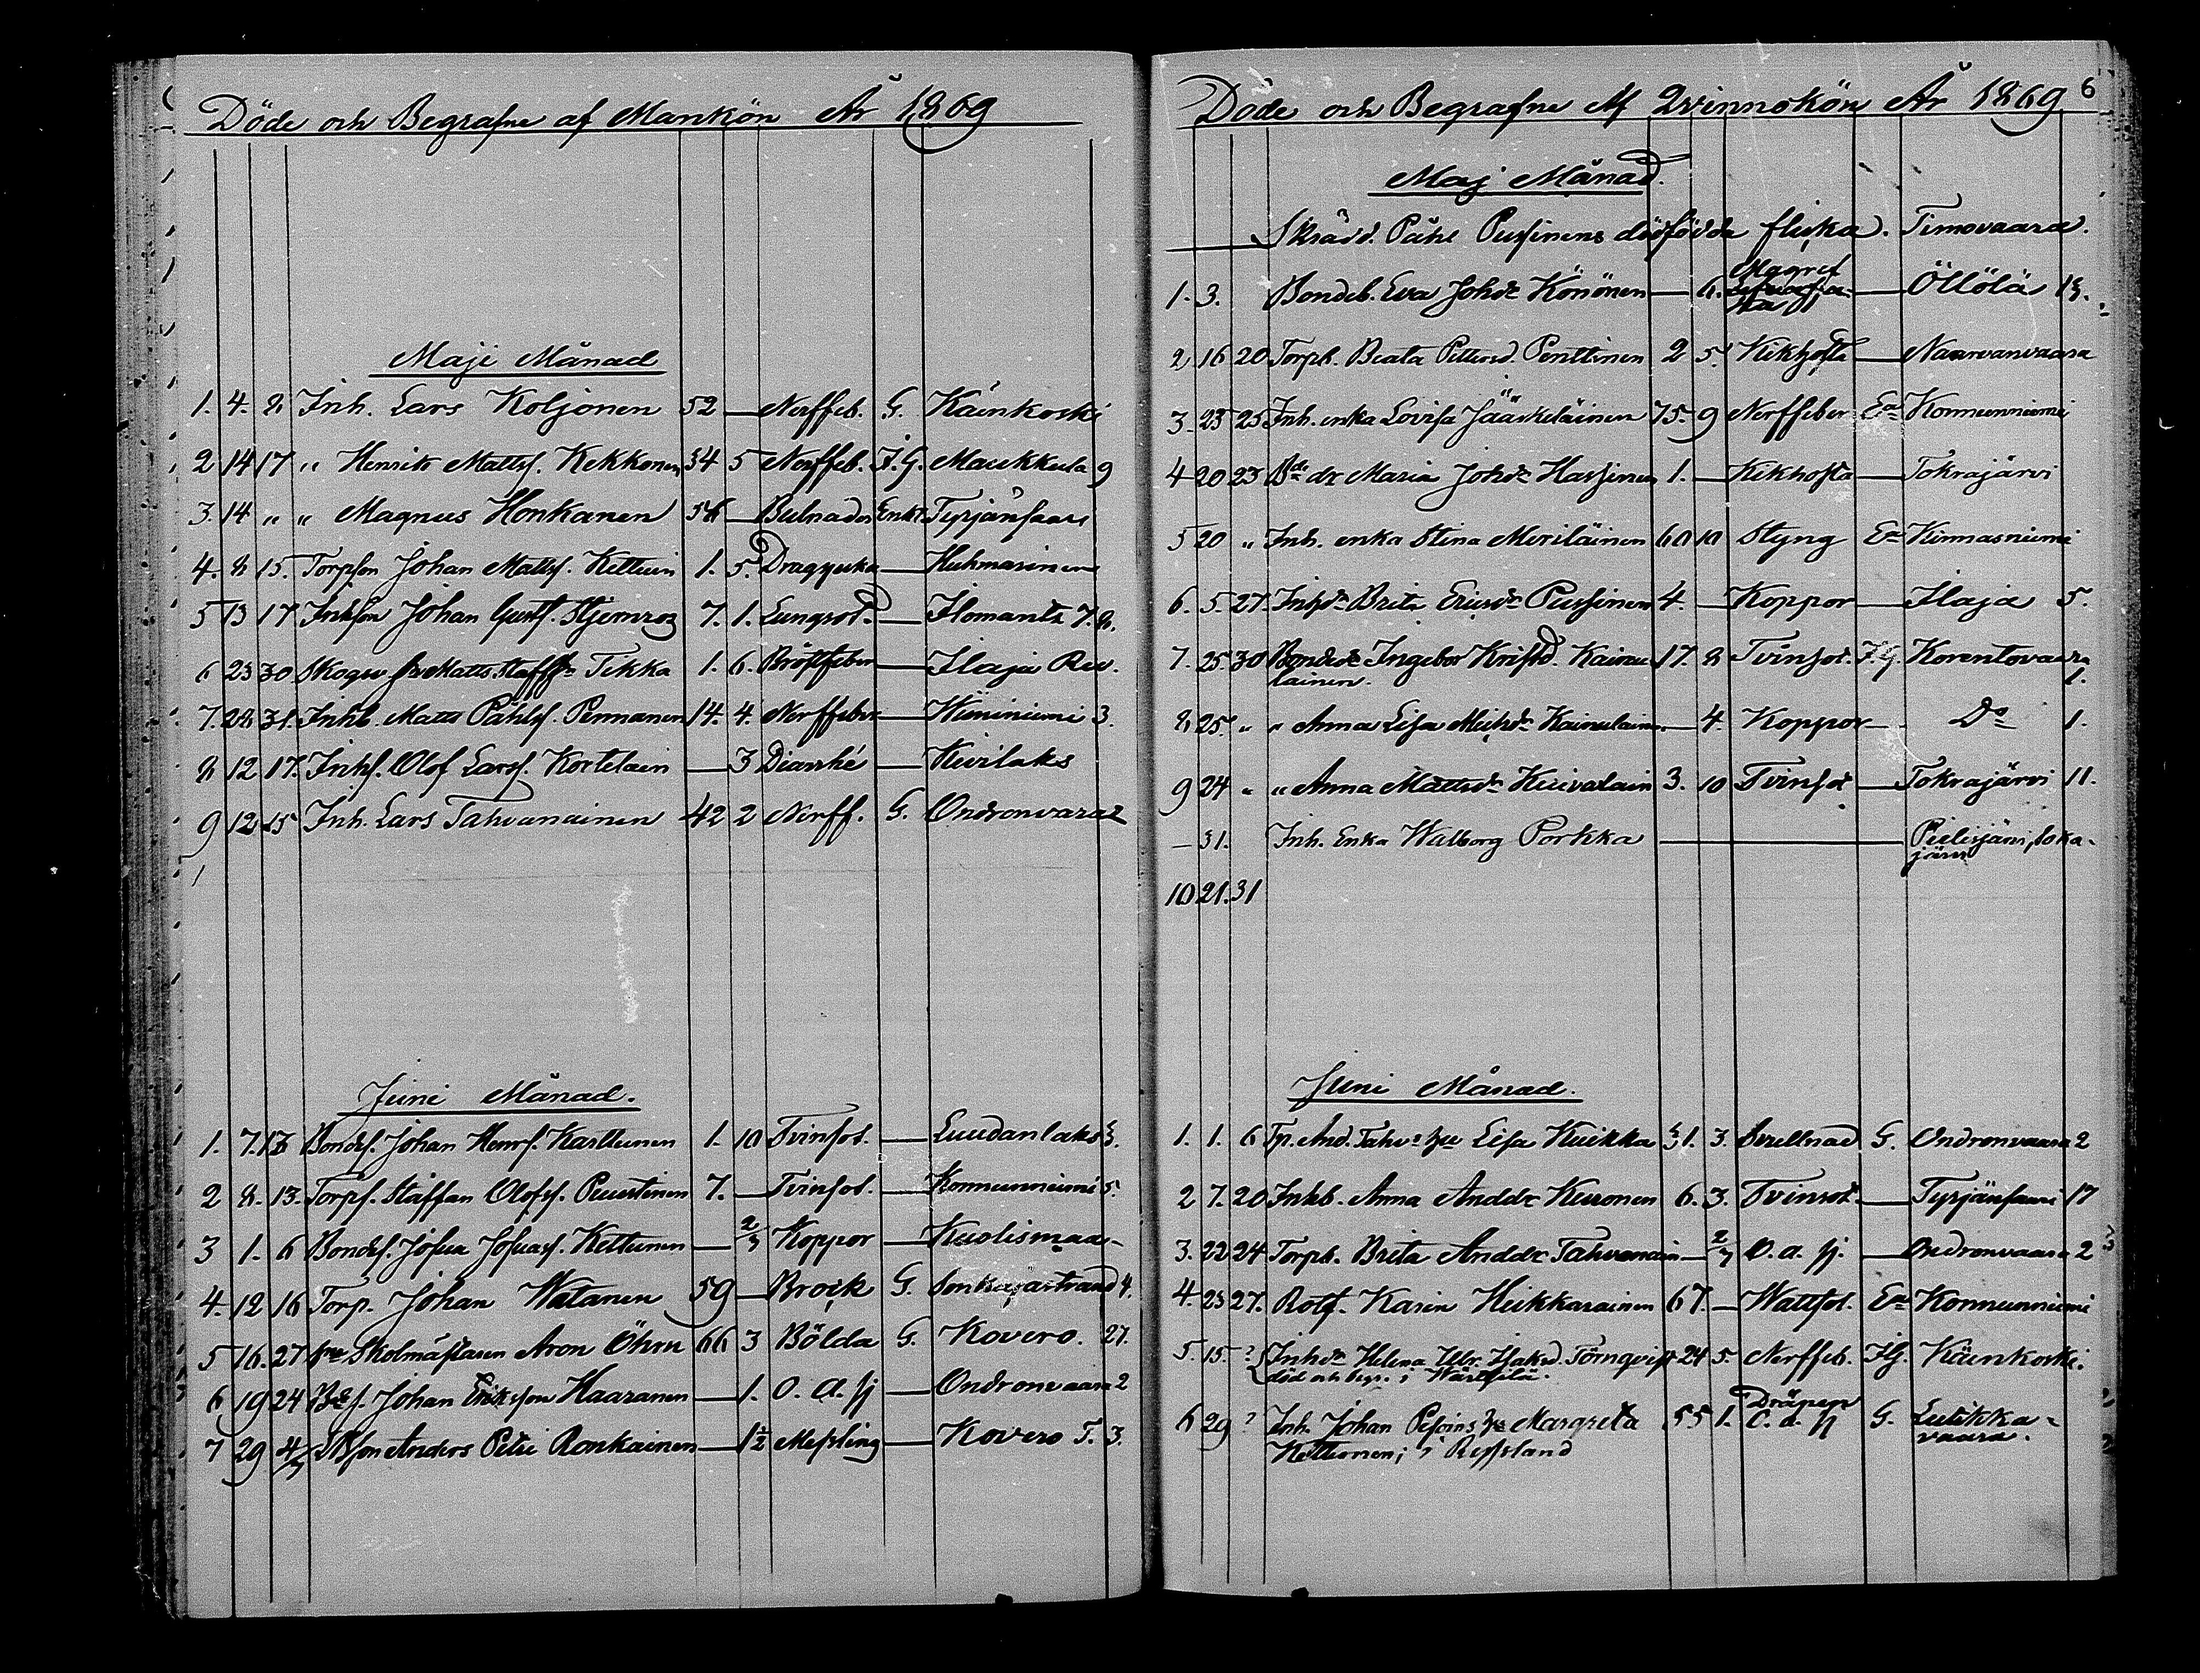 Döde och Begrafne af Mankön År 1869
Maji Månad
1. 4. 8 Inh. Lars Koljonen 52 — Nerffeb. G. Känkoski
2 14 17 " Henrik Mattsf. Kekkonen 34 5 Nerffeb. I.G. Maukkula 9
3. 14 " " Magnus Honkanen 56 — Bulnader Enkl. Tyrjänsaari
4. 8 15. Torpson Johan Mattsf. Kettuin 1. 5. Dragsjuka — Huhmarinen
5 13 17 Inhson Johan Gustf. Stjernroz 7. 1. Lungsot. — Ilomants 7.8.
6 23 30 Skogsv Matts Tikka 1. 6. Bröstfeber — Ilaja Rev.
7. 28 31. Inhb. Matts Påhlsf. Pennanen 14. 4. Nerffeber — Hiininiemi 3.
8 12 17. Inhf. Olof Larsf. Kortelain — 3 Diarrhé — Kivilaks
9 12 15 Inh. Lars Tahvanainen 42 2 Nerff. G. Ondronvaara 2
Juni Månad.
1. 7. 13 Bondsf. Johan Henrf. Karttunen 1. 10 Tvinsot. — Luudanlaks 3.
2 8. 13. Torpf. Staffan Olofsf. Puustinen 7. — Tvinsot. — Konnunniemi 5.
3 1. 6 Bondsf. Josua Josuasf. Kettunen — 2/3 Koppor — Kuolismaa
4. 12 16 Torp. Johan Watanen 59 — Bråck G. Sonkajastrand 4.
5 16. 27 Skolmästaren Aron Öhrn 66 3 Bölda G. Kovero. 27.
6 19 24 Bdef. Johan Eriksson Haaranen — 1. O. a. sj — Ondronvaara 2
7 29 4/7 Anders Petri Ronkainen — 1½ Messling — Kovero T. 3.
Döde och Begrafne Af Qvinnokön År 1869 6
Maj Månad.
Skrädd. Påhl Pussinens dödfödda flicka. Timovaara.
1. 3. Bondeb. Eva Johdr Könönen — 6. — Öllölä 13.
2 16 20 Torpb. Beata Pettersd. Penttinen 2 5. Kikhosta — Naarvanvaara
3. 23 25 Inh. enka Lovisa Jääskeläinen 75. 9 Nerffeber Ea Konnunniemi
4 20 23 Bde dr Maria Johdr Hassinen 1. — Kikhosta — Tokrajärvi
5 20 " Inh. enka Stina Meriläinen 60 10 Styng Ea Kinnasniemi
6. 5. 27. Inhdr Brita Ericsdr Pussinen 4. — Koppor — Ilaja 5.
7. 25. 30 Bondedr Ingebor Kristd. Kainulainen. 17. 8 Tvinsot. I.G. Korentovaara 1.
8 25. " " Anna Lisa Michdr Kainulainen. — 4. Koppor — Do 1.
9 24 " " Anna Mattsdr Kuivalain 3. 10 Tvinsot — Tokrajärvi 11.
— 31. Inh. Enka Walborg Porkka — Pielisjärvi, Loka-
järvi
10 21. 31
Juni Månad.
1. 1. 6 Tp. And. Tahv: hu Lisa Kuikka 31. 3. Svullnad G. Ondronvaara 2
2 7. 20 Inhb. Anna Anddr Keuronen 6. 3. Tvinsot. — Tyrjänsaari 17
3. 22 24 Torpb. Brita Anddr Tahvanain — 2/3 O. a. sj. — Ondronvaara 2
4. 23 27. Rotf. Karin Heikkarainen 67. — Wattsot. Ea Konnunniemi
5. 15. ? Inhdr Helena Ulr. Isaksd. Törnqvist 24 5. Nerffeb. I.G. Känkoski.
död och begr. i Wärtsilä.
6 29 ? Inh. Johan Pesoins hu Margreta 55 1. O. a. sj G. Lutikka-
Kettunen; i Ryssland vaara.